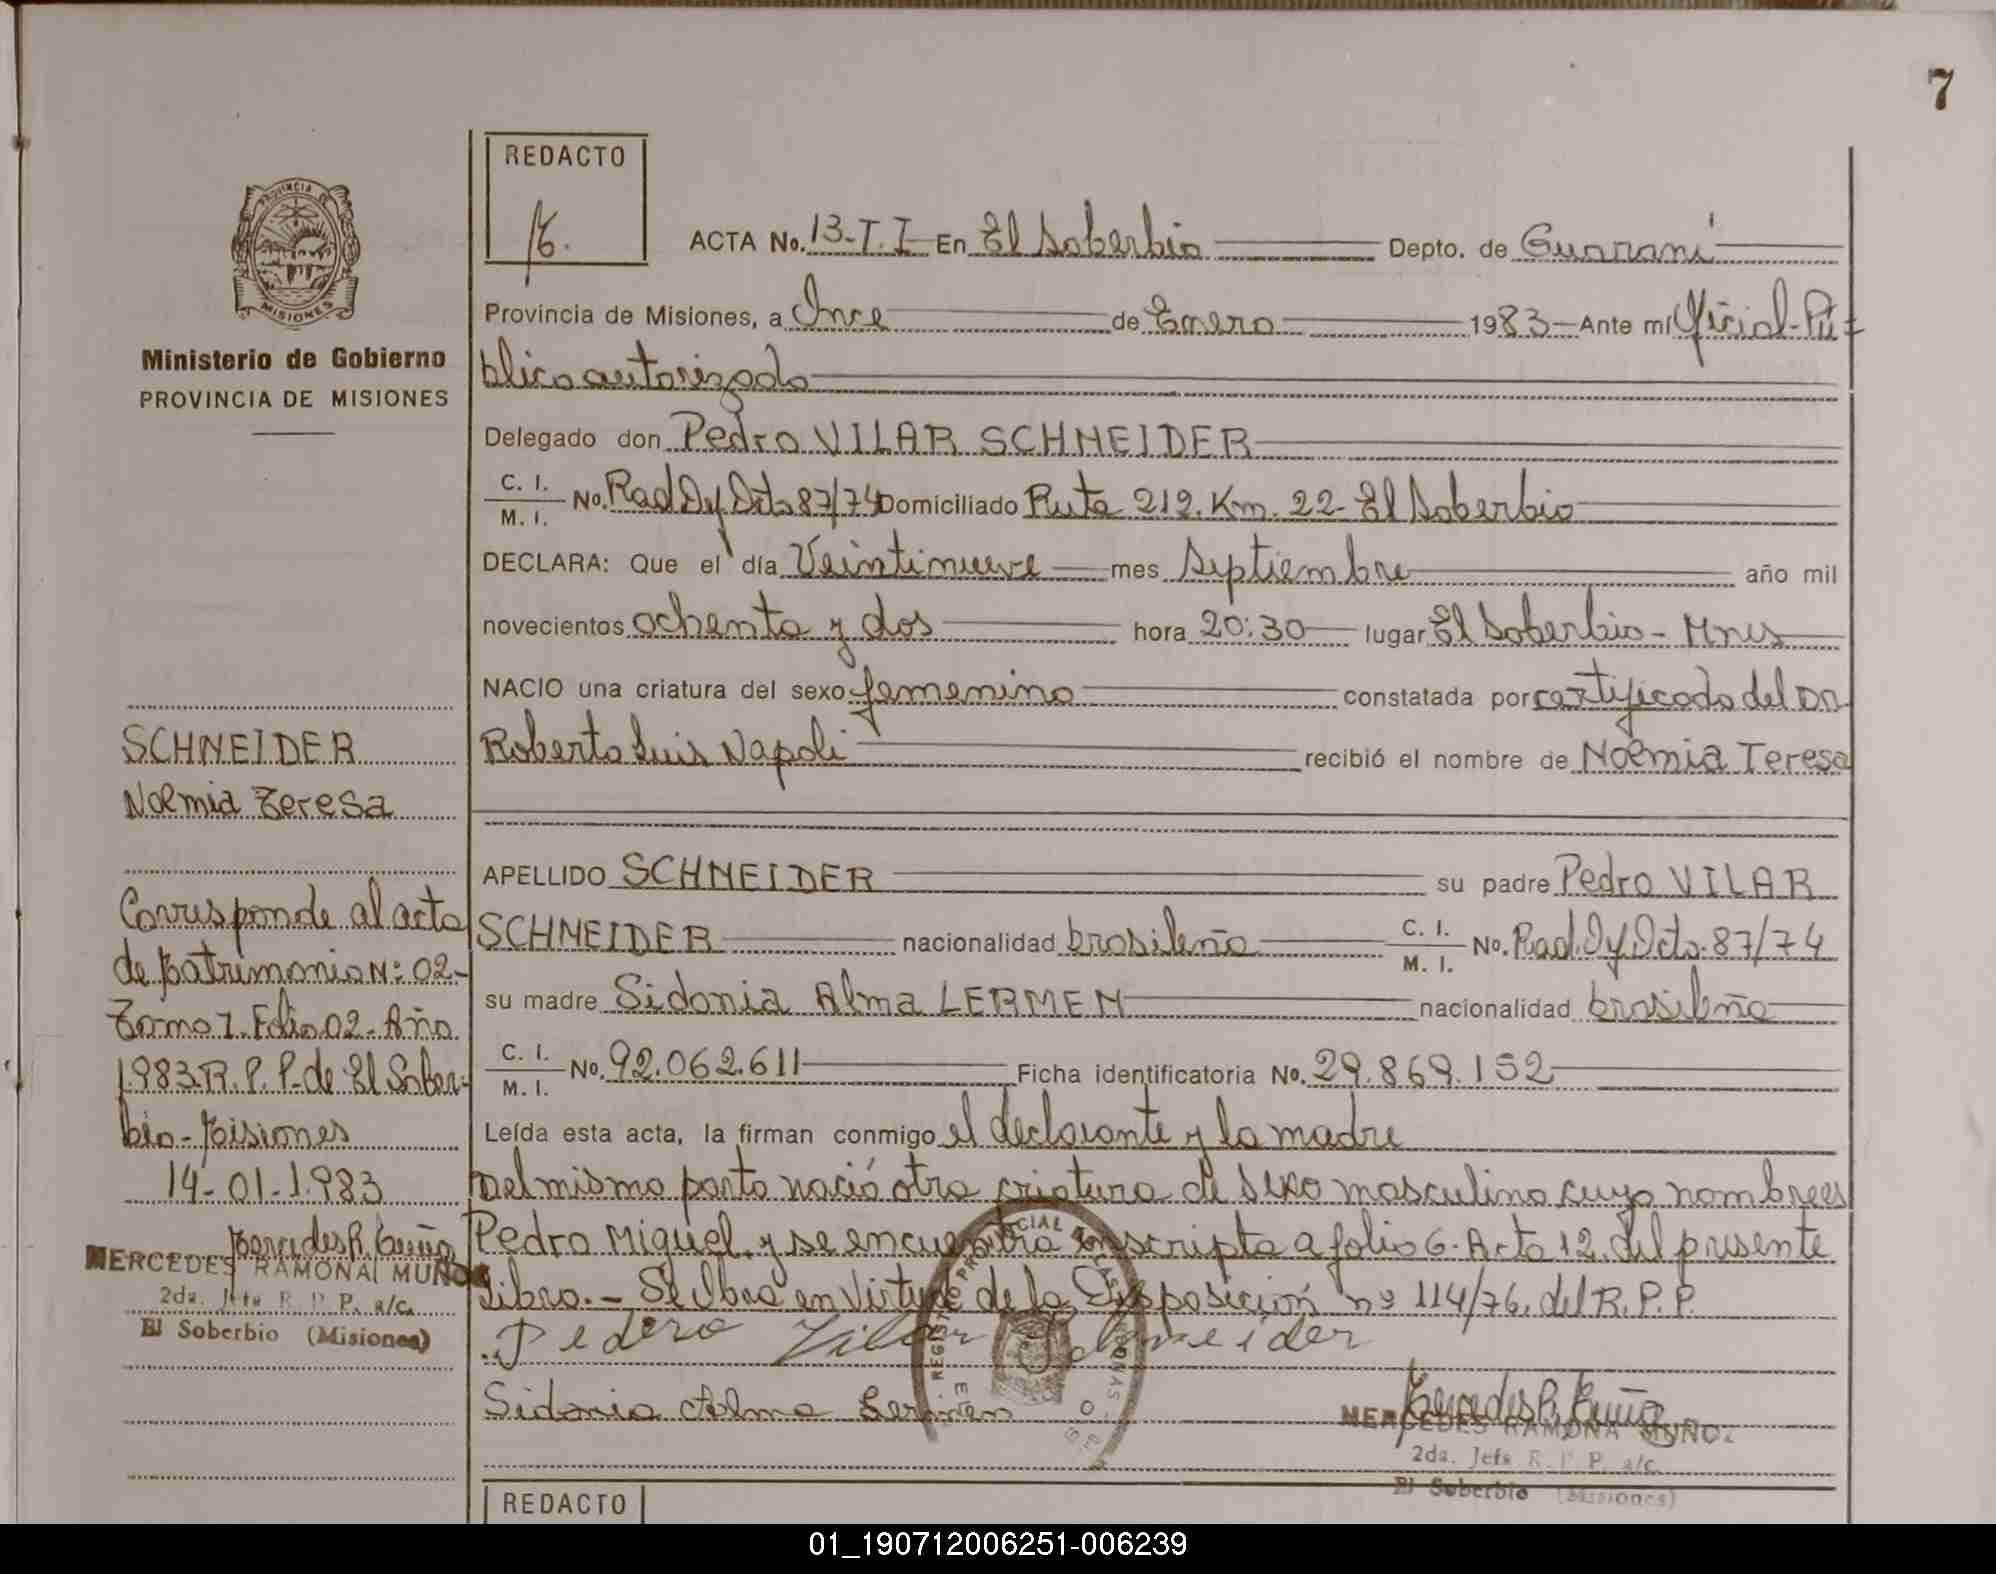 7
REDACTO
PROVINCIA DE
MISIONES
Ministerio de Gobierno
PROVINCIA DE MISIONES
ACTA No. 13-T.I En El Soberbio Depto. de Guaraní
Provincia de Misiones, a Once de Enero 1983 Ante mí Oficial Pú-
blico autorizado
Delegado don Pedro VILAR SCHNEIDER
C. I.
M. I. No. Rad Dy Dcto 87/74 Domiciliado Ruta 212. Km. 22- El Soberbio
DECLARA: Que el día Veintinueve mes Septiembre año mil
novecientos ochenta y dos hora 20:30 lugar El Soberbio - Mnes
NACIO una criatura del sexo femenino constatada por certificado del Dr
Roberto Luis Napoli recibió el nombre de Noemia Teresa
APELLIDO SCHNEIDER su padre Pedro VILAR
SCHNEIDER nacionalidad brasileño C. I.
M. I. No. Rad. Dy Dcto. 87/74
su madre Sidonia Alma LERMEN nacionalidad brasileña
C. I.
M. I. No. 92.062.611 Ficha identificatoria No. 29.869.152
Leída esta acta, la firman conmigo el declarante y la madre
Del mismo parto nació otra criatura de sexo masculino cuyo nombre es
Pedro Miguel y se encuentra inscripta a folio 6. Acta 12. del presente
libro. - Se labra en virtud de la Disposición nº 114/76. del R.P.P.
Pedro Vilar Schneider
Sidonia Alma Lermen
MERCEDES RAMONA MUÑOZ
2da. Jefa R. P. P. a/c.
El Soberbio (Misiones)
SCHNEIDER
Noemia Teresa
Corresponde al acta
de Matrimonio Nº 02-
Tomo I. Folio 02- Año
1983 R. P. P. de El Sober-
bio - Misiones
14-01-1983
MERCEDES RAMONA MUÑOZ
2da. Jefa R. P. P. a/c.
El Soberbio (Misiones)
REDACTO
01_190712006251-006239